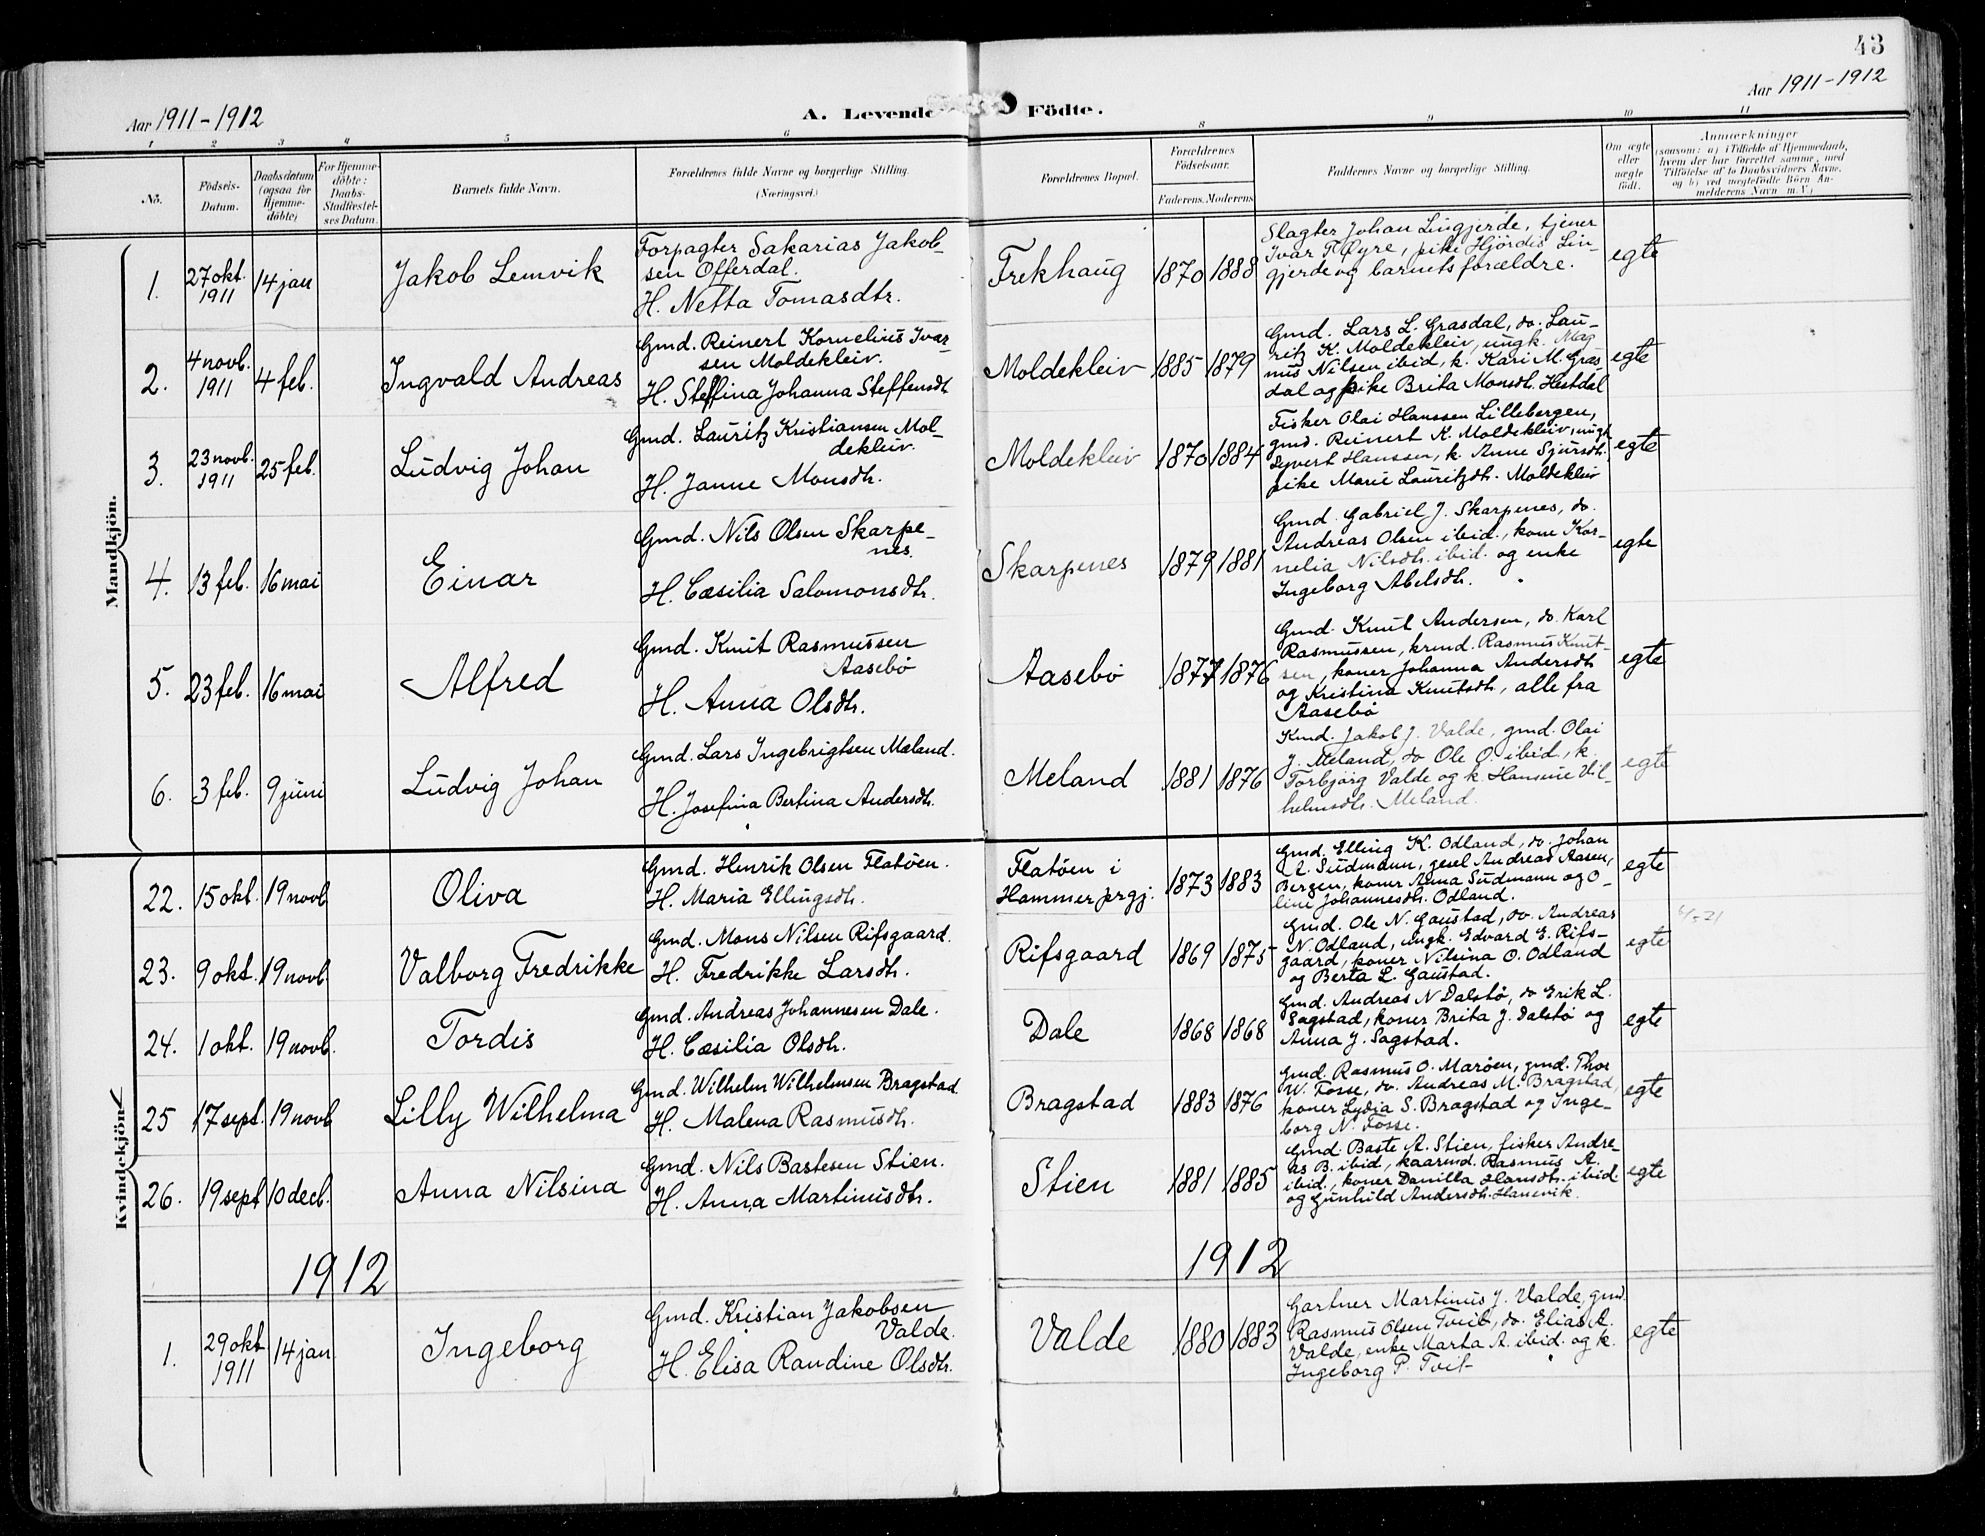 43
Aar 1911-1912
A. Levende Födte.
Aar 1911-1912
1 2 3 4 5 6 8 9 10 11
No.
Födsels-Datum.
Daabsdatum (ogsaa for Hjemmedöbte)
For Hjemmedöbte: Daabs-Stadfestelses Datum.
Barnets fulde Navn.
Forældrenes fulde Navne og borgerlige Stilling.
(Næringsvei.)
Forældrenes Bopæl.
Forældrenes Födselsaar.
Faderens. Moderens.
Faddernes Navne og borgerlige Stilling.
Om ægte eller uægte födt.
Anmærkninger
(saasom: a) i Tilfælde af Hjemmedaab,
hvem der har forrettet samme, med
Tilföielse af to Daabsvidners Navne,
og b) ved uægtefödte Börn An-
melderens Navn m. V.)
Mandkjön.
1. 27 okt. 1911 14 jan Jakob Lemvik
Forpagter Sakarias Jakob-
sen Offerdal.
H. Netta Tomasdtr.
Frekhaug 1870 1888
Slagter Johan Lingjerde, tjener
Ivar T. Øyre, pike Hjördis Lin-
gjerde og barnets forældre.
egte
2. 4 novb. 1911 4 feb. Ingvald Andreas
Gmd. Reinert Kornelius Ivar-
sen Moldekleiv.
H. Steffina Johanna Steffensdt
Moldekleiv 1885 1879
Gmd. Lars L. Grasdal, do. Lau-
ritz K. Moldekleiv, ungk. Mag
nus Nilsen ibid, k. Kari M. Gras-
dal og pike Brita Monsdt. Hestdal
egte
3. 23 novb. 1911 25 feb. Ludvig Johan
Gmd. Lauritz Kristiansen Mol-
dekleiv.
H. Janne Monsdtr.
Moldekleiv 1870 1884
Fisker Olai Hanssen Lillebergen,
gmd. Reinert K. Moldekleiv, ungk
Syvert Hanssen, k. Anne Sjursdtr.
pike Marie Lauritzdtr. Moldekleiv
egte
4. 13 feb. 16 mai Einar
Gmd. Nils Olsen Skarpe-
nes.
H. Cæsilia Salomonsdtr.
Skarpenes 1879 1881
Gmd. Gabriel J. Skarpenes, do.
Andreas Olsen ibid., kone Kor-
nelia Nilsdtr. ibid. og enke
Ingeborg Abelsdtr.
egte
5. 23 feb. 16 mai Alfred
Gmd. Knut Rasmussen
Aasebö
H. Anna Olsdtr.
Aasebö 1877 1876
Gmd. Knut Andersen, do. Karl
Rasmussen, krmd. Rasmus Knut-
sen, koner Johanna Andersdtr
og Kristina Knutsdtr, alle fra
Aasebö
egte
6. 3 feb. 9 juni Ludvig Johan
Gmd. Lars Ingebrigtsen Meland.
H. Josefina Bertina Andersdtr.
Meland 1881 1876
Kmd. Jakob J. Valde, gmd. Olai
J. Meland, do Ole O. ibid., k.
Torbjörg Valde og k. Hansine Vil-
helmsdtr. Meland.
egte
Kvindekjön
22. 15 okt. 19 novb Oliva
Gmd. Henrik Olsen Flatöen.
H. Maria Ellingsdtr.
Flatöen i
Hammer prgj.
1873 1883
Gmd. Elling K. Odland, do. Johan
A. Sudmann, gesel Andreas Aasen,
Bergen, koner Anna Sudmann og O-
line Johannesdtr. Odland.
egte
23. 9 okt. 19 novb. Valborg Fredrikke
Gmd. Mons Nilsen Rifsgaard.
H. Fredrikke Larsdtr.
Rifsgaard 1869 1875
Gmd. Ole N. Gaustad, do. Andreas
N. Odland, ungk. Edvard E. Rifs-
gaard, koner Nilsina O. Odland
og Berta L. Gaustad.
egte
24. 1 okt. 19 novb. Tordis
Gmd. Andreas Johannesen Dale.
H. Cæsilia Olsdtr.
Dale 1868 1868
Gmd. Andreas N Dalstø, do Erik L.
Sagstad, koner Brita J. Dalstø og
Anna J. Sagstad.
egte
25 17 sept. 19 novb Lilly Wilhelma
Gmd. Wilhelm Wilhelmsen Bragstad
H. Malena Rasmusdtr.
Bragstad 1883 1876
Gmd. Rasmus O. Marøen, gmd. Thor
W. Fosse, do. Andreas M. Bragstad,
koner Lydia S. Bragstad og Inge-
borg N. Fosse.
egte
26. 19 sept 10 decb. Anna Nilsina
Gmd. Nils Bastesen Stien.
H. Anna Martinusdtr.
Stien 1881 1885
Gmd. Baste A. Stien, fisker Andre-
as B. ibid, kaarmd. Rasmus A.
ibid., koner Danilla Hansdtr. ibid
og Gunhild Andersdtr. Hanevik.
egte
1912 1912
1. 29 okt 1911 14 jan Ingeborg
Gmd. Kristian Jakobsen
Valde.
H. Elisa Randine Olsdtr.
Valde 1880 1883
Gartner Martinus J. Valde, gmd.
Rasmus Olsen Tveit, do. Elias A.
Valde, enke Marta A. ibid. og k.
Ingeborg P. Tveit
egte